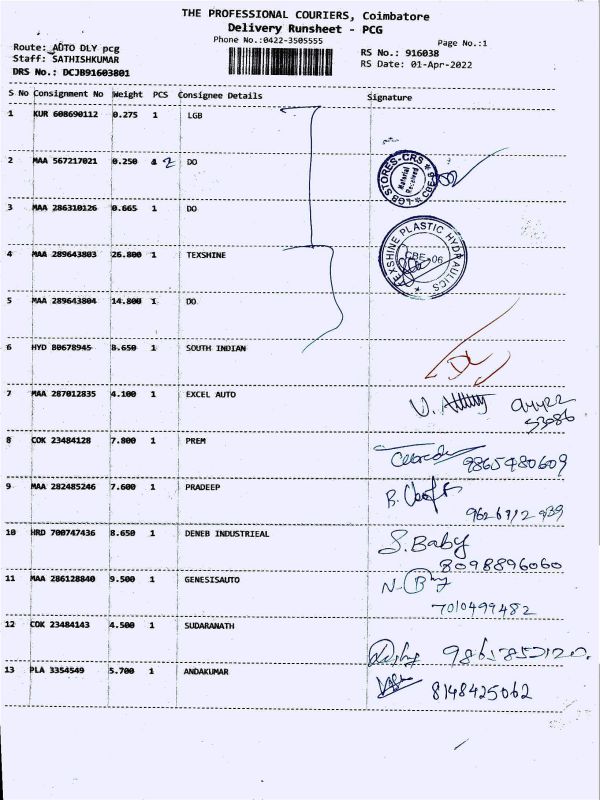 THE PROFESSIONAL COURIERS, Coimbatore
Delivery Runsheet - PCG
Phone No.:0422-3505555
Page No.:1
Route: AUTO DLY pcg
Staff: SATHISHKUMAR
RS No.: 916038
DRS No.: DCJB91603801
RS Date: 01-Apr-2022
S No Consignment No Weight PCS Consignee Details Signature
1 KUR 608690112 0.275 1 LGB
2 MAA 567217021 0.250 2 DO
LGB STORES-CRS
Material Received
3 MAA 286310126 0.665 1 DO
4 MAA 289643803 26.800 1 TEXSHINE
TEXSHINE PLASTIC HYDRAULICS
CBE-06
5 MAA 289643804 14.800 1 DO
6 HYD 80678945 8.650 1 SOUTH INDIAN
DL
7 MAA 287012835 4.100 1 EXCEL AUTO
8 COK 23484128 7.800 1 PREM
9865480609
9 MAA 282485246 7.600 1 PRADEEP
10 HRD 700747436 8.650 1 DENEB INDUSTRIEAL
S. Baby
8098896060
11 MAA 286128840 9.500 1 GENESISAUTO
7010499482
12 COK 23484143 4.500 1 SUDARANATH
13 PLA 3354549 5.700 1 ANDAKUMAR
8148425062